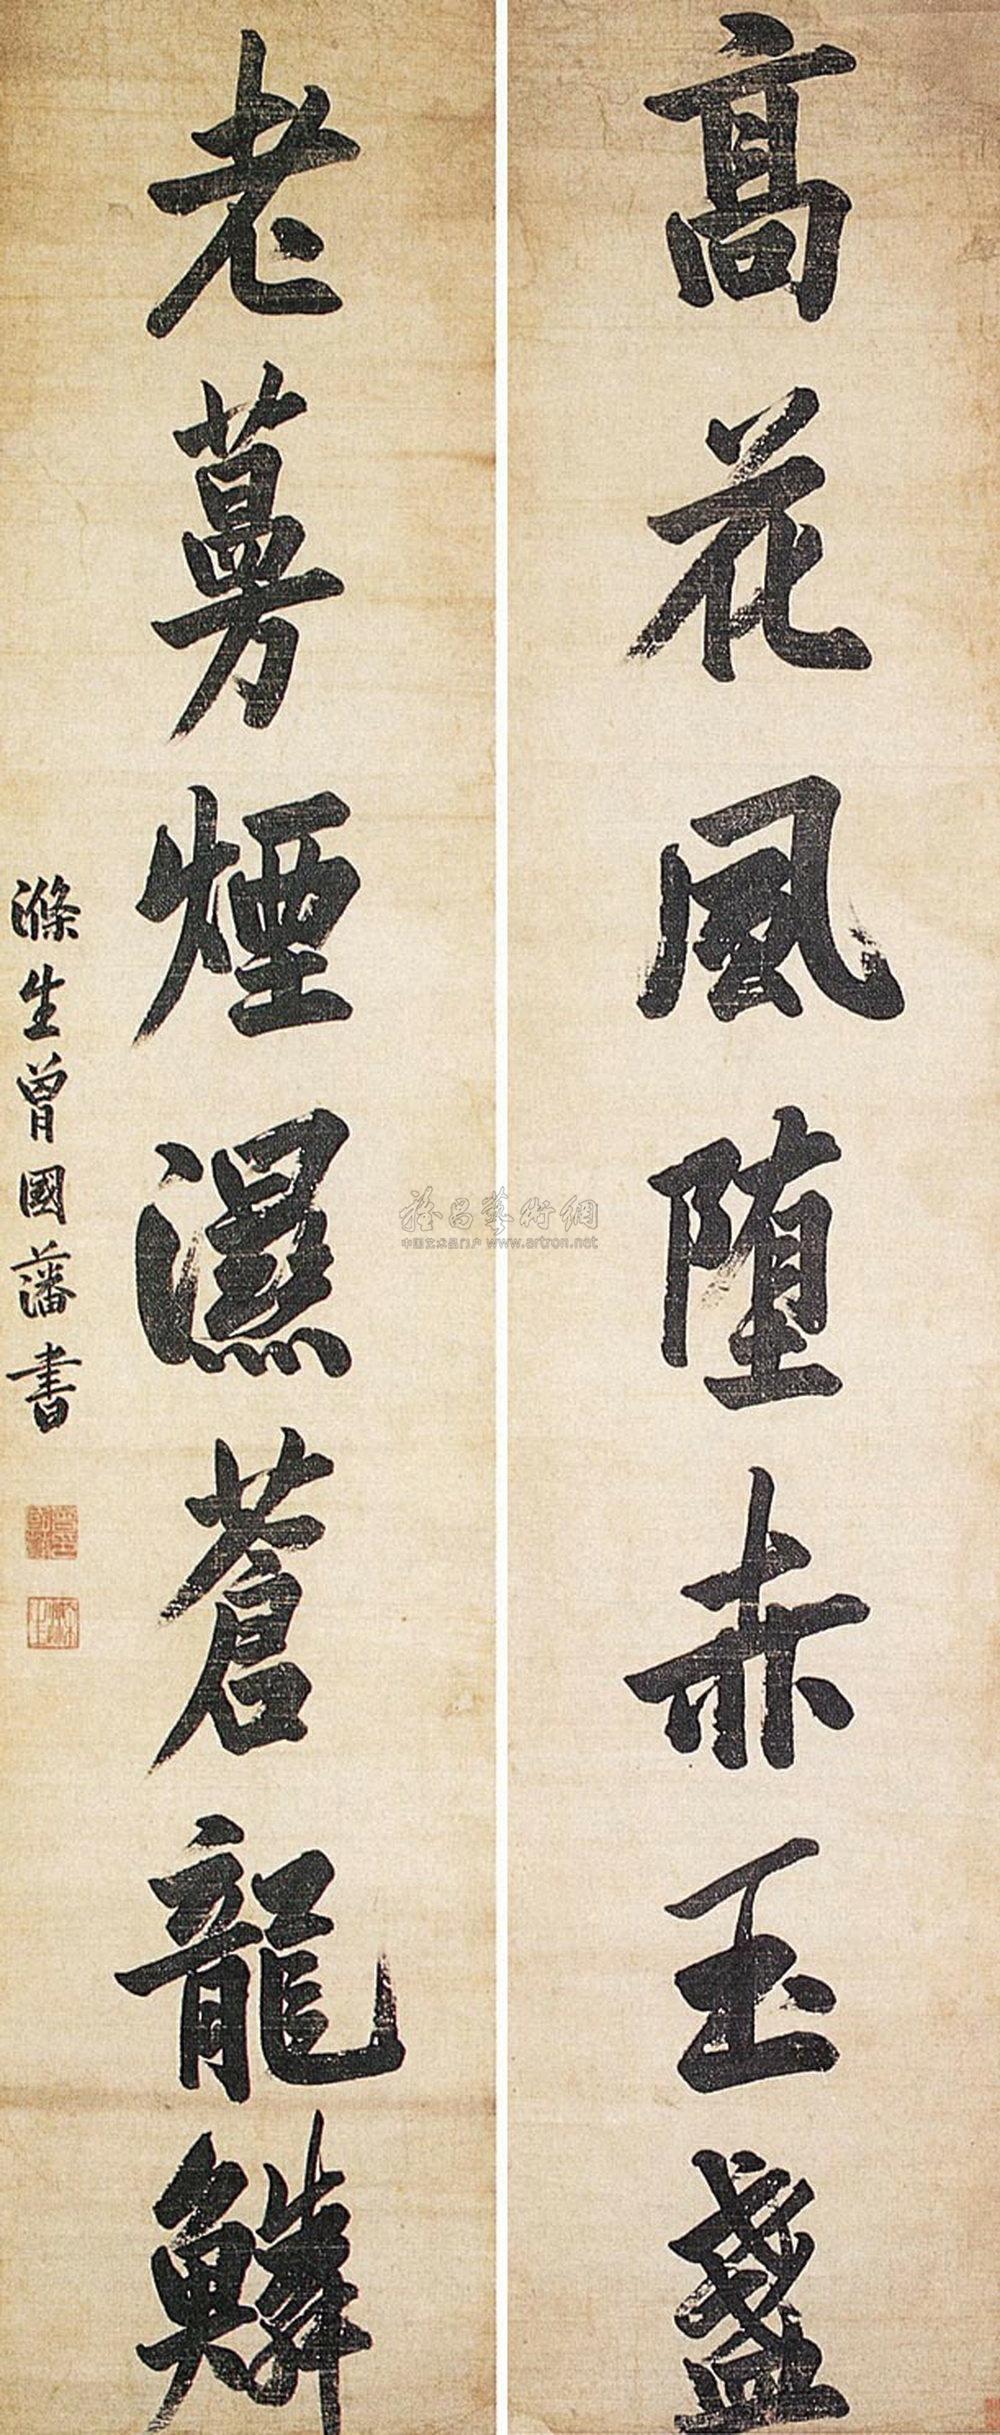 高花風堕赤玉盞
老蔓煙濕蒼龍鱗
滌生曾國藩書
中国艺术品门户 www.artron.net